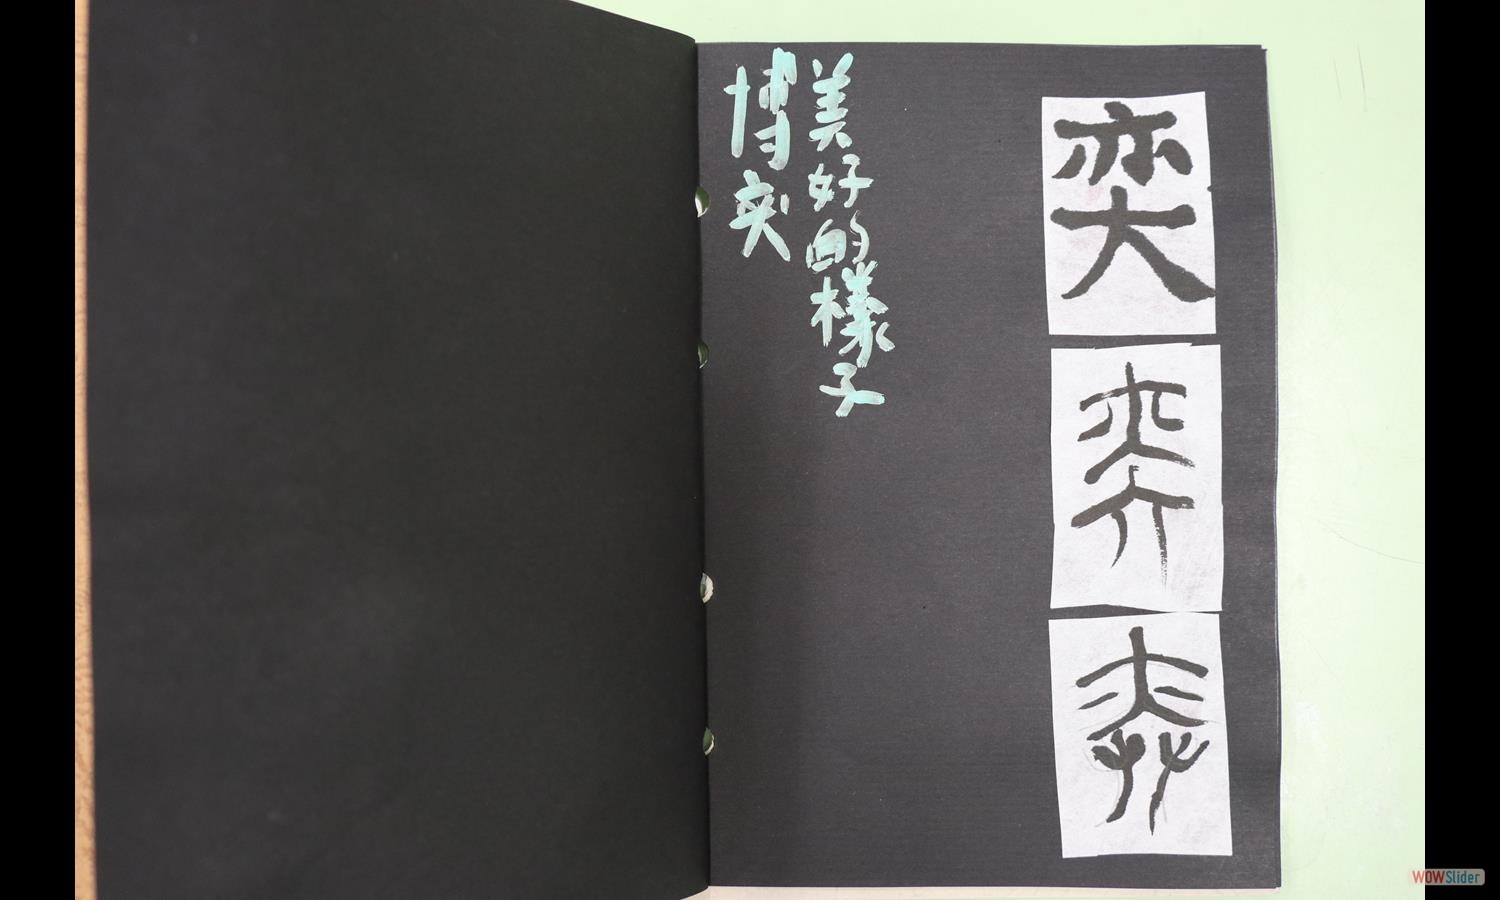 奕
奕
弈
美好的樣子
博奕
WOWSlider